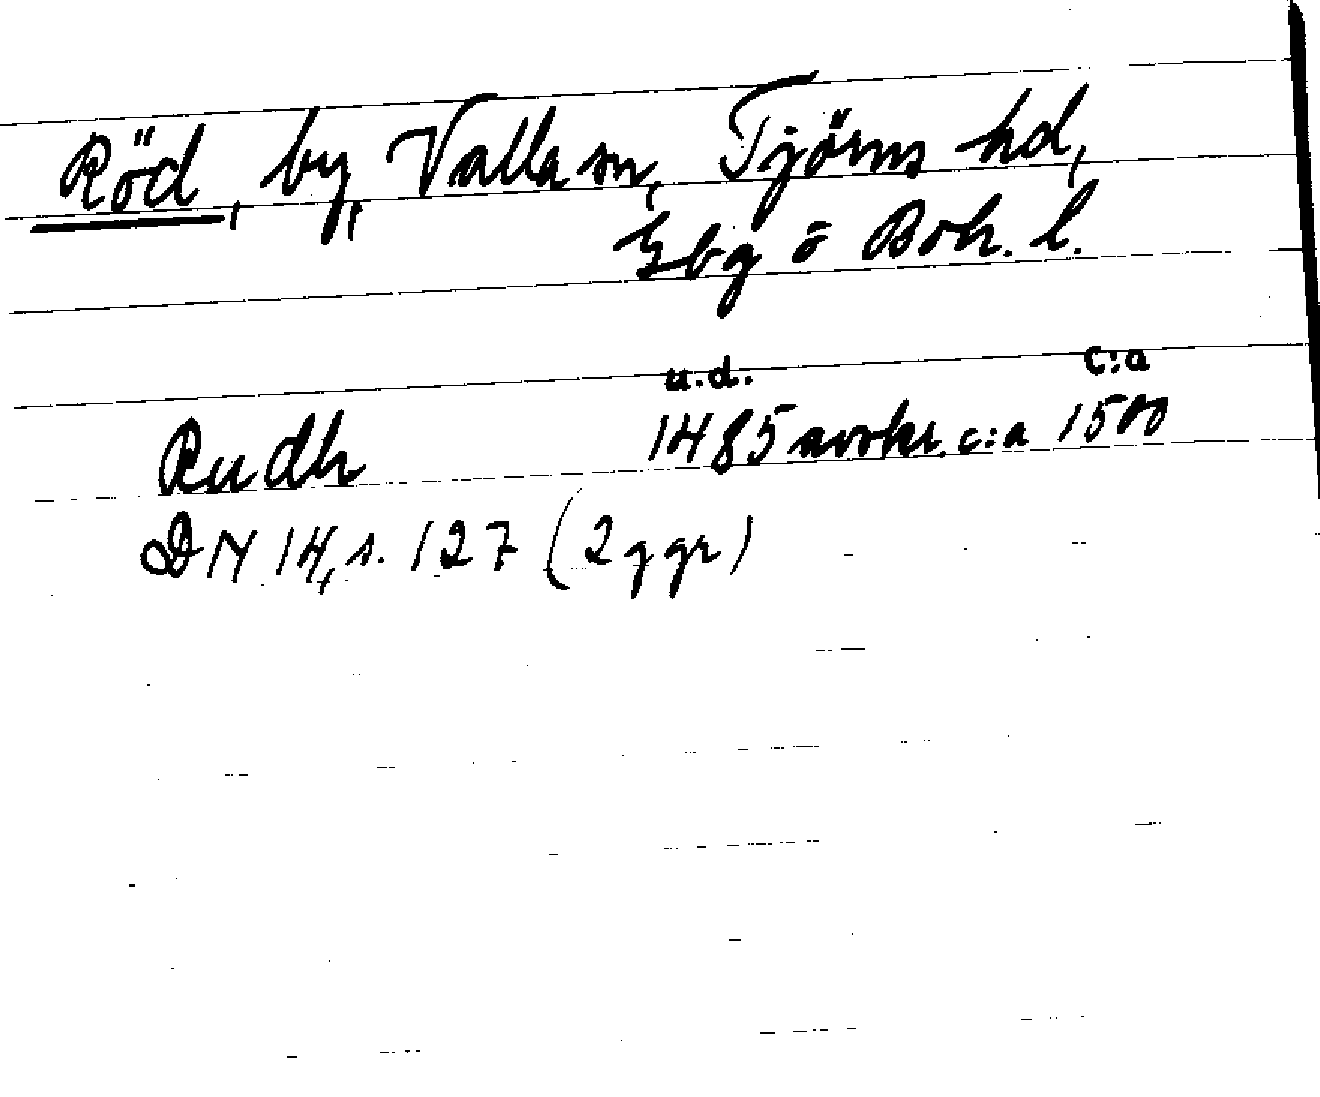 Röd, by, Valla sn, Tjörns hd,
Gbg o Boh. l.
u.d. c:a
Rudh 1485 avskr. c:a 1500
DN 14, s. 127 (2 ggr)